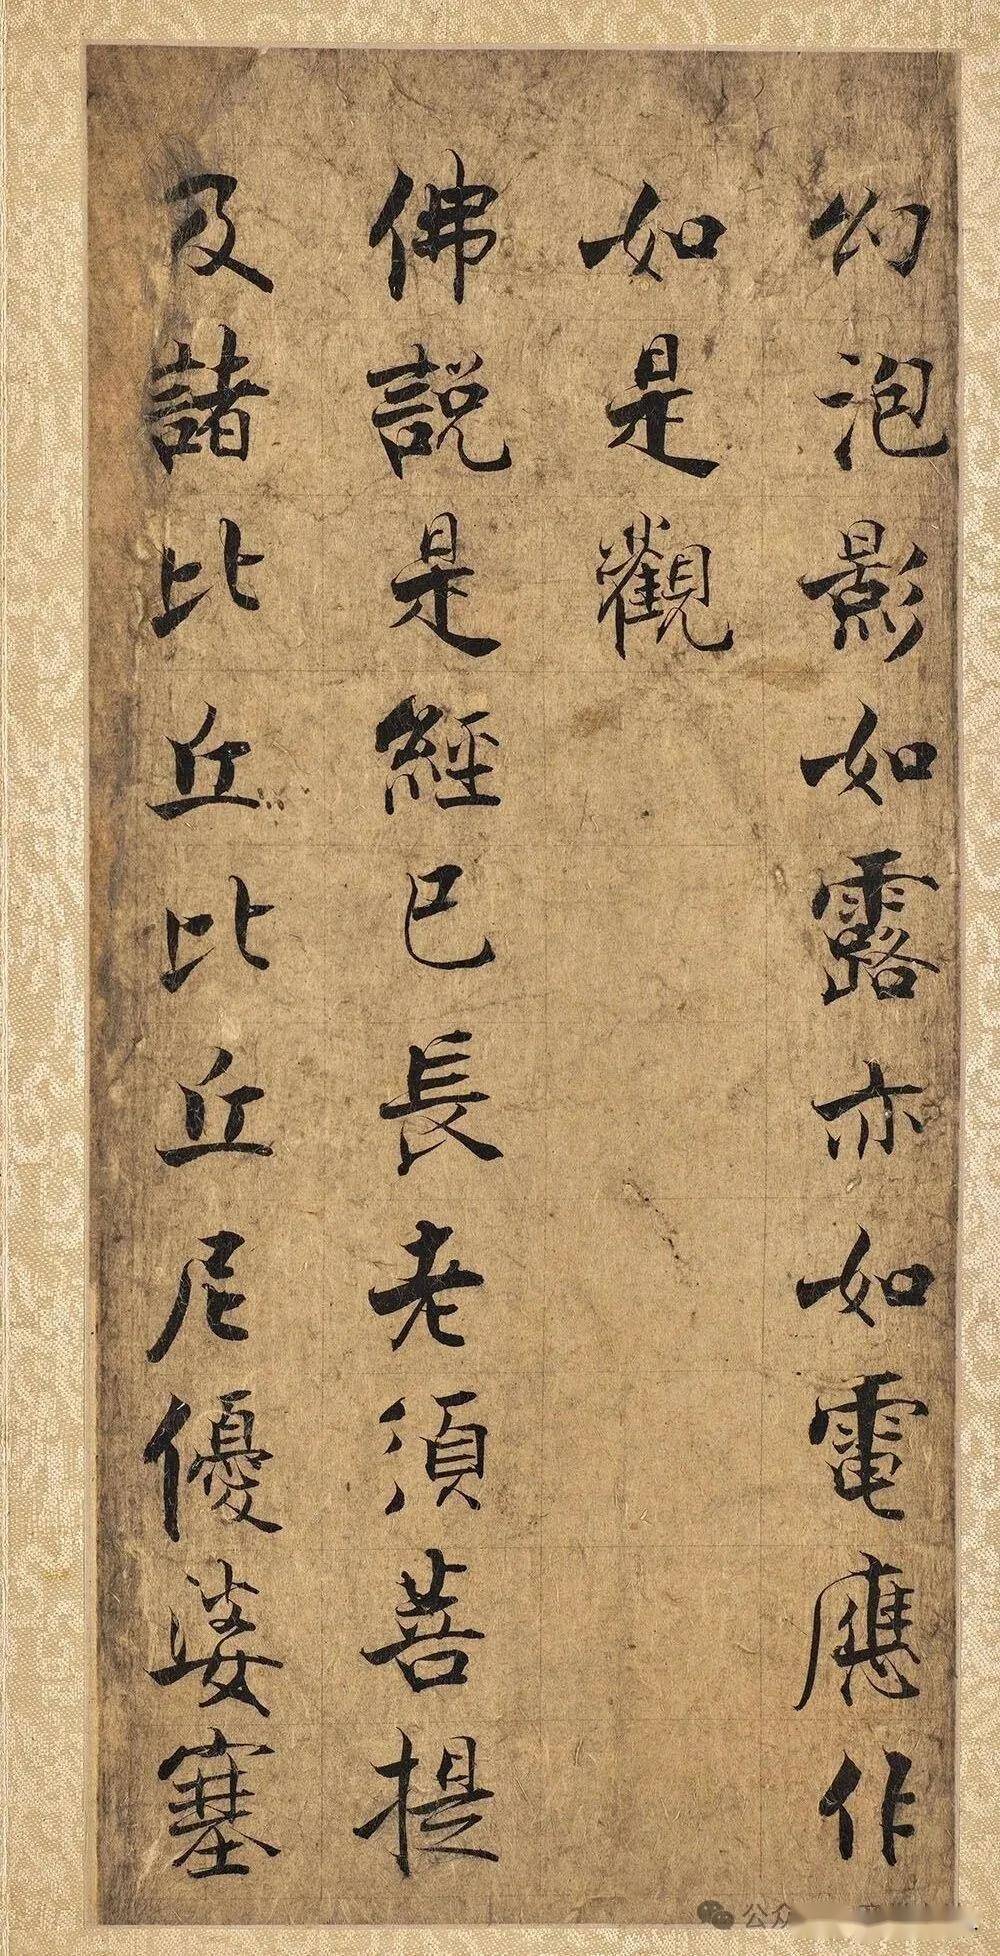 幻泡影如露亦如電應作
如是觀
佛説是經已長老須菩提
及諸比丘比丘尼優婆塞
公众